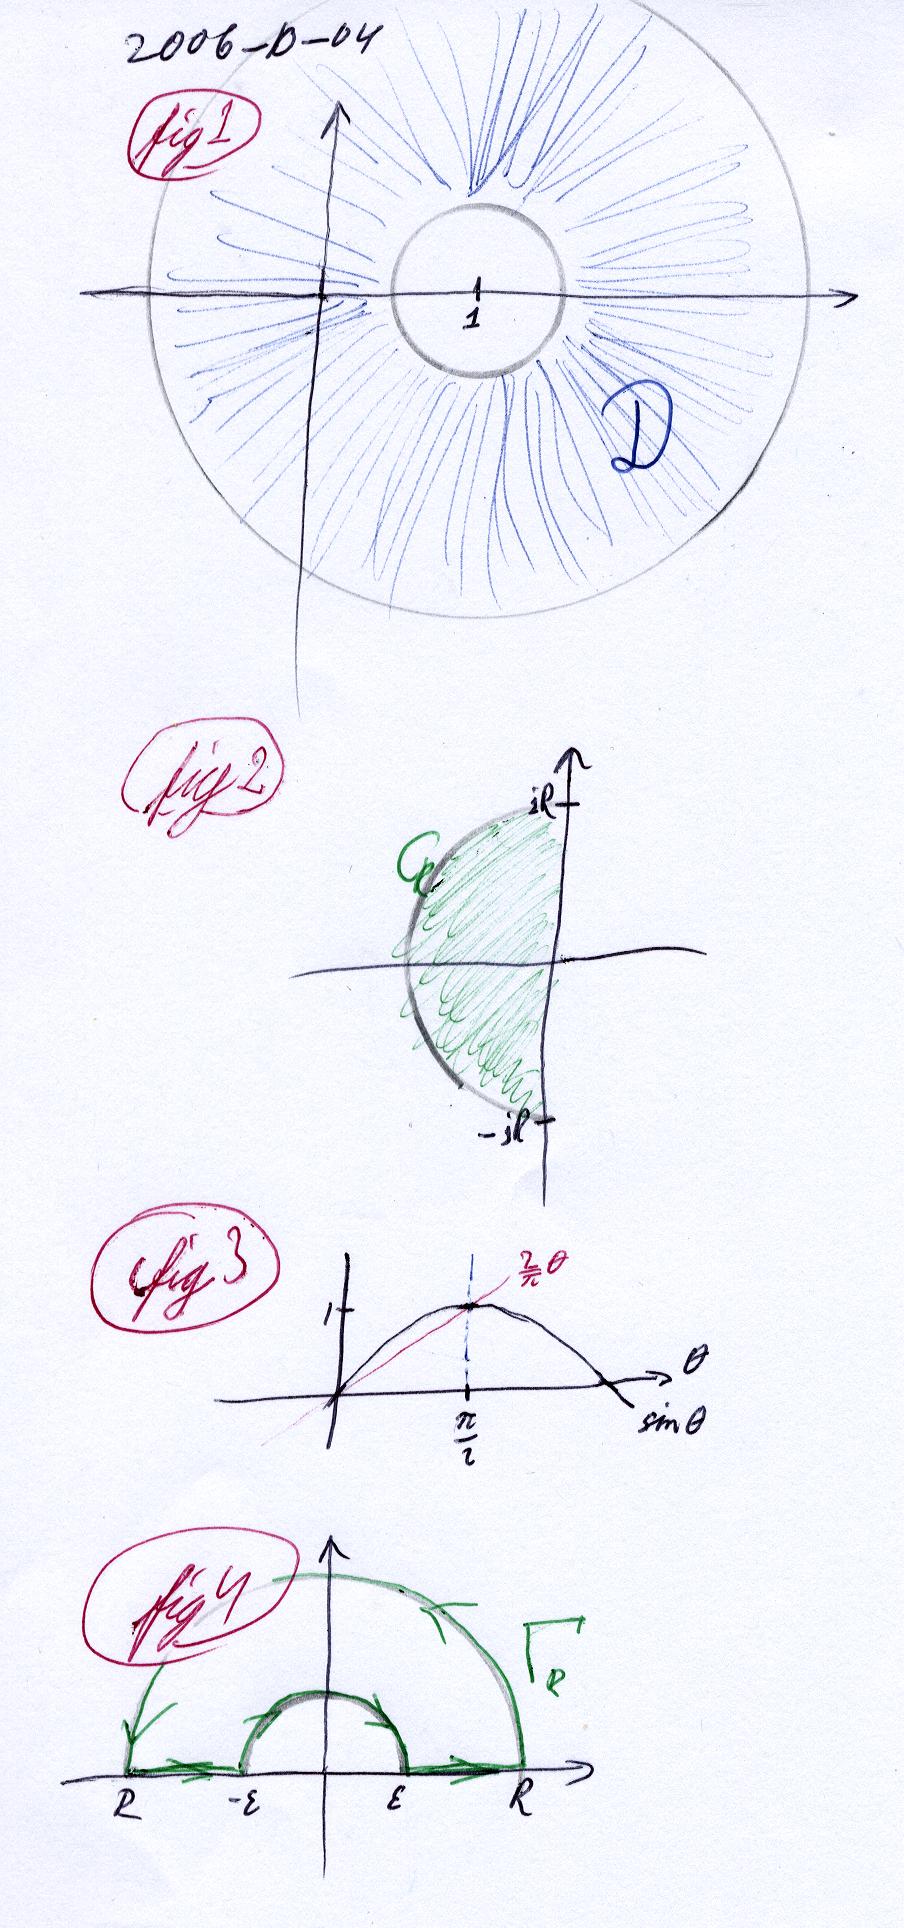 2006-D-04
fig 1
1
D
fig 2
iR
C_R
-iR
fig 3
2/π θ
1
θ
π/2
sin θ
fig 4
Γ_R
R -ε ε R